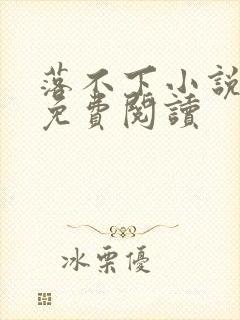 落不下小說
免費閱讀
冰栗優